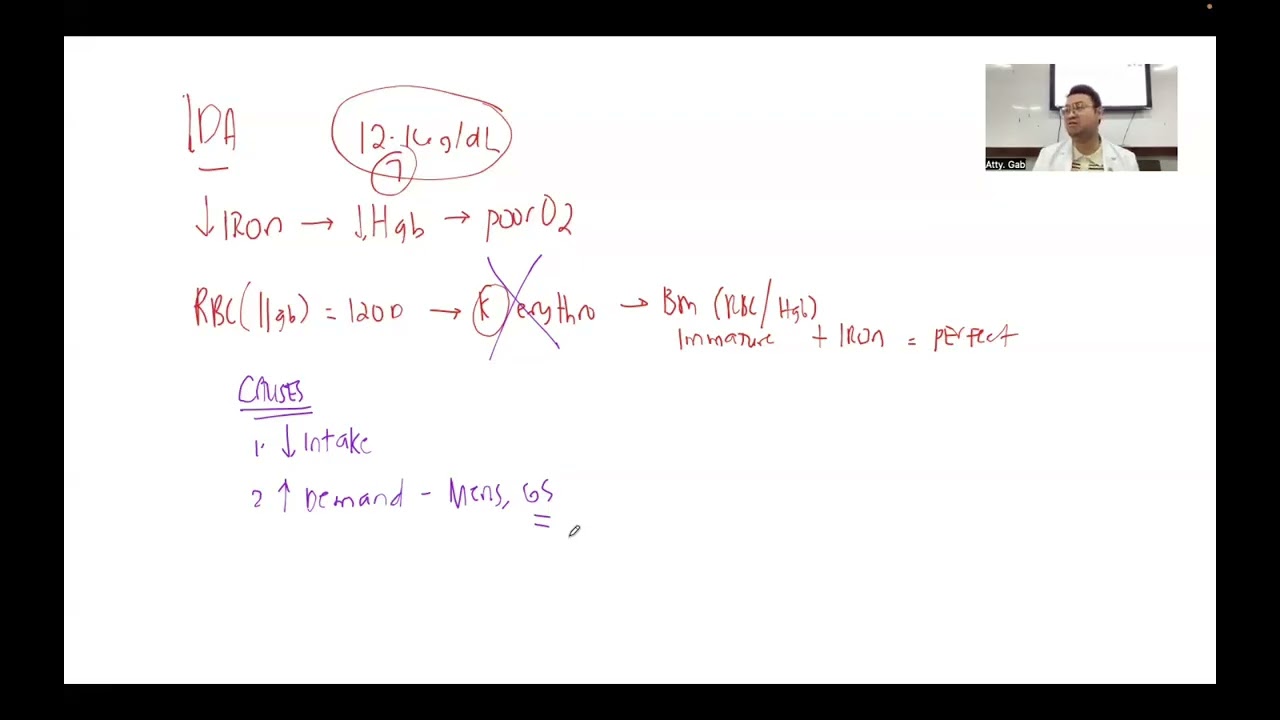 IDA
12-16g/dL
7
↓ IRon → ↓Hgb → poor O2
RBC (Hgb) = 120D → K erythro → Bm (RBC/Hgb)
Immature + IRon = perfect
CAUSES
1. ↓ Intake
2 ↑ Demand - Mens, GS
Atty. Gab